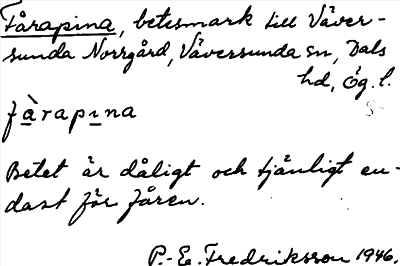 Fårapina, betesmark till Väver-
sunda Norrgård, Väversunda sn, Dals
hd, Ög. l.
fàrapina
Betet är dåligt och tjänligt en-
dast för fåren.
P.-E. Fredriksson 1946.